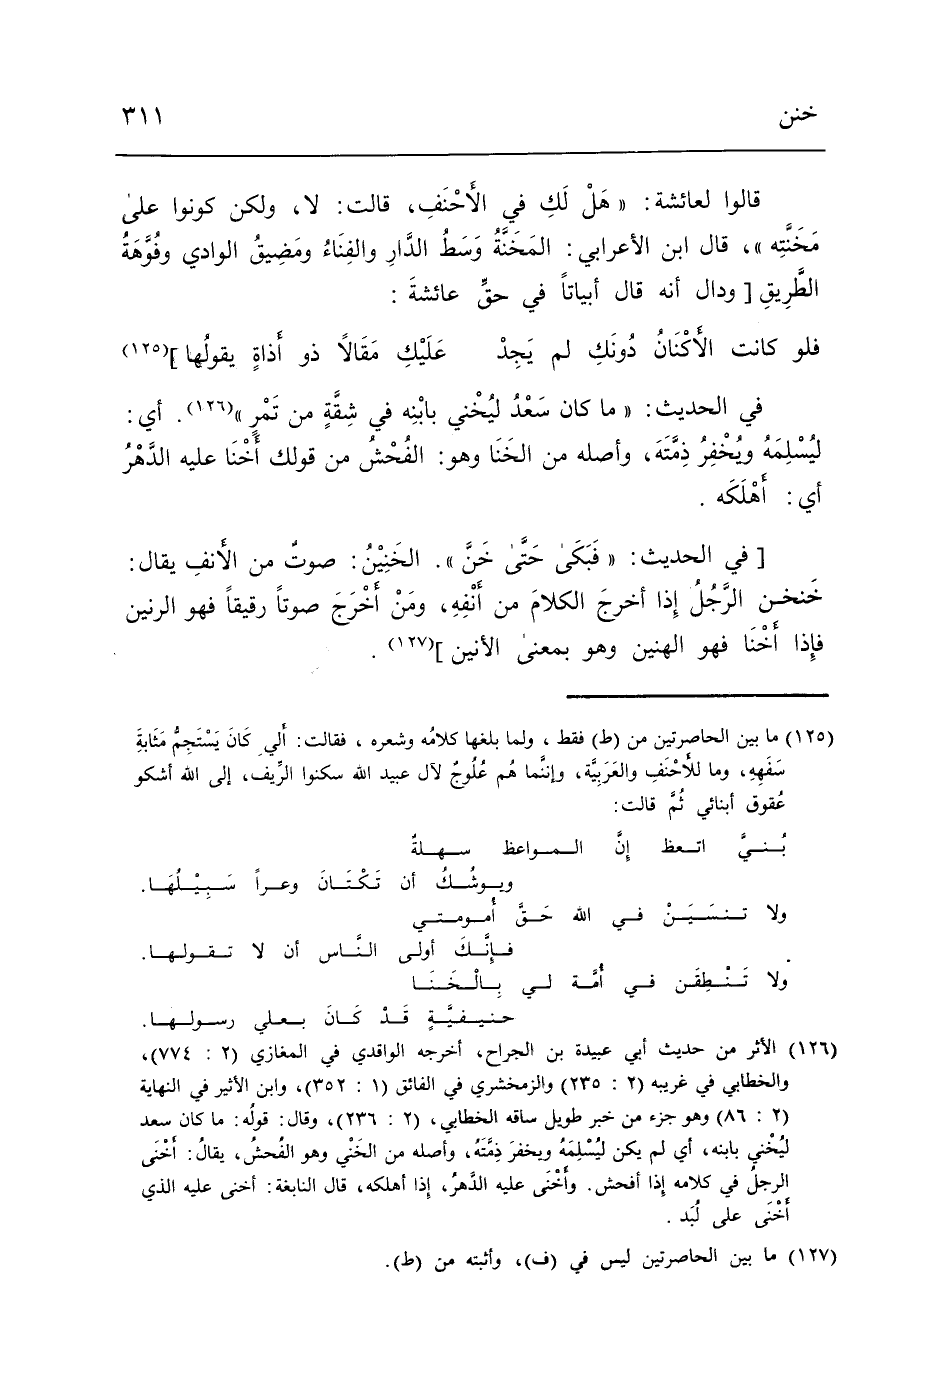 خنن ٣١١
قالوا لعائشة: « هَلْ لَكِ في الأَحْنَفِ، قالت: لا، ولكن كونوا علىٰ
مَخَنَّتِه »، قال ابن الأعرابي: المَخَنَّةُ وَسَطُ الدَّارِ والفِنَاءُ ومَضِيقُ الوادي وفُوَّهَةُ
الطَّرِيقِ [ ودال أنه قال أبياتاً في حقِّ عائشةَ :
فلو كانت الأَكْنَانُ دُونَكِ لم يَجِدْ عَلَيْكِ مَقَالًا ذو أَذاةٍ يقولُها ](١٢٥)
في الحديث: « ما كان سَعْدُ لِيُخْني بابْنِه في شِقَّةٍ من تَمْرٍ »(١٢٦). أي:
لِيُسْلِمَهُ ويُخْفِرُ ذِمَّتَهَ، وأصله من الخَنَا وهو: الفُحْشُ من قولك أَخْنَا عليه الدَّهْرُ
أي: أَهْلَكَه .
[ في الحديث: « فَبَكىٰ حَتَّىٰ خَنَّ ». الخَنِيْنُ: صوتٌ من الأنفِ يقال:
خَنخـن الرَّجُلُ إِذا أخرجَ الكلامَ من أَنْفِهِ، ومَنْ أَخْرَجَ صوتاً رقيقاً فهو الرنين
فإِذا أَخْنَا فهو الهنين وهو بمعنىٰ الأنين ](١٢٧) .
(١٢٥) ما بين الحاصرتين من (ط) فقط ، ولما بلغها كلامُه وشعره ، فقالت: أَلي كَانَ يَسْتَجِمُّ مَثَابةَ
سَفَهِهِ، وما للأَحْنَفِ والعَرَبيَّة، وإنَّما هُم عُلُوجٌ لآل عبيد الله سكنوا الرِّيف، إلى الله أشكو
عُقوق أبنائي ثُمَّ قالت:
بُـنـيَّ اتـعـظ إنَّ الـمـواعظ سـهـلةٌ
ويـوشُـكُ أن تَـكْـتَـانَ وعـراً سَـبِـيْـلُـهَـا.
ولا تـنـسَـيَـنْ فـي الله حَـقَّ أُمـومـتـي
فـإِنَّـكَ أولـى الـنَّـاس أن لا تـقـولـهـا.
ولا تَـنْـطِقَـن فـي أُمَّـة لـي بِـالْـخَـنَـا
حـنـيـفـيَّـةٍ قَـدْ كَـانَ بـعـلي رسـولـهـا.
(١٢٦) الأثر من حديث أبي عبيدة بن الجراح، أخرجه الواقدي في المغازي (٢ : ٧٧٤)،
والخطابي في غريبه (٢ : ٢٣٥) والزمخشري في الفائق (١ : ٣٥٢)، وابن الأثير في النهاية
(٢ : ٨٦) وهو جزء من خبر طويل ساقه الخطابي، (٢ : ٢٣٦)، وقال: قولُه: ما كان سعد
لِيُخْني بابنه، أي لم يكن لِيُسْلِمَهُ ويخفرَ ذِمَّتَهُ، وأصله من الخَنْي وهو الفُحشُ، يقالُ: أَخْنَى
الرجلُ في كلامه إِذا أفحش. وأَخْنَى عليه الدَّهرُ، إذا أهلكه، قال النابغة: أخنى عليه الذي
أَخْنَى على لُبَد .
(١٢٧) ما بين الحاصرتين ليس في (ف)، وأثبته من (ط).